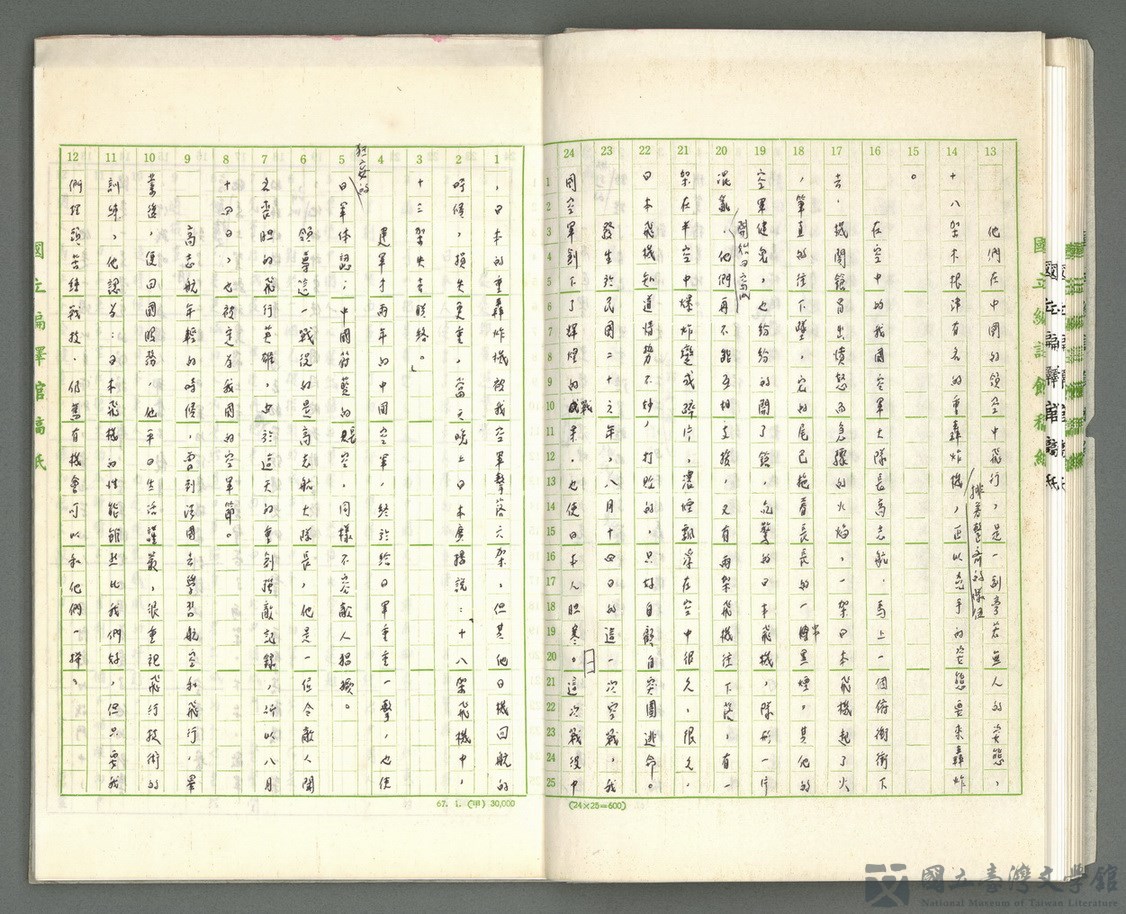 13
14
15
16
17
18
19
20
21
22
23
24
他們在中國的領空中飛行，是一副旁若無人的姿態，
十八架木根津有名的重轟炸機，排着整齊的隊伍正以的姿態要來轟炸
。
在空中的我國空軍大隊長高志航，馬上一個俯衝衝下
去，機關鎗冒出憤怒而急驟的火焰，一架日本飛機起了火
，筆直的往下墜，它的尾巴拖着長長的一串黑煙。其他的
空軍健兒，也紛紛的開了鎗，吃驚的日本飛機，隊形一片
混亂，開始四，他們再不能互相支援，又有兩架飛機往下落，有一
架在半空中爆炸變成碎片，濃煙飄浮在空中很久，很久，
日本飛機知道情勢不妙，打敗的，只好自顧自突圍逃命。
發生於民國二十六年，八月十四日的這一次空戰，我
國空軍創下了輝煌的戰果，也使日本人胆寒。這次戰役中
(24×25=600)
1
2
3
4
5
6
7
8
9
10
11
12
，日本的重轟炸機被我空軍擊落六架，但其他日機回航的
時候，損失更重，當天晚上日本廣播說：「十八架飛機中，
十三架失去聯絡。」
建軍才兩年的中國空軍，終於給日軍重重一擊，也使
狂妄的日軍体認；中國蔚藍的空，同樣不容敵人猖獗。
，領導這一戰役的是高志航大隊長，他是一位令敵人聞
名喪胆的飛行英雄，由於這天的重創強敵記錄，所以八月
十四日，也被定為我國的空軍節。
高志航年輕的時候，曾到法國去學習航空和飛行，畢
業後，便回國服務，他平日生活謹嚴，很重視飛行技術的
訓練，他認為：日本飛機的性能雖然比我們好，但只要我
們苦練戰技，仍舊有機會可以和他們一拼。
67. 1. (甲) 30,000
國立編譯館稿紙
國立臺灣文學館
National Museum of Taiwan Literature